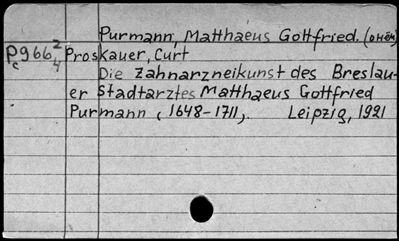 Purmann, Matthaeus Gottfried. (онём)
Pc966 2/4 Proskauer, Curt
Die Zahnarzneikunst des Breslau-
er Stadtarztes Matthaeus Gottfried
Purmann (1648-1711). Leipzig, 1921